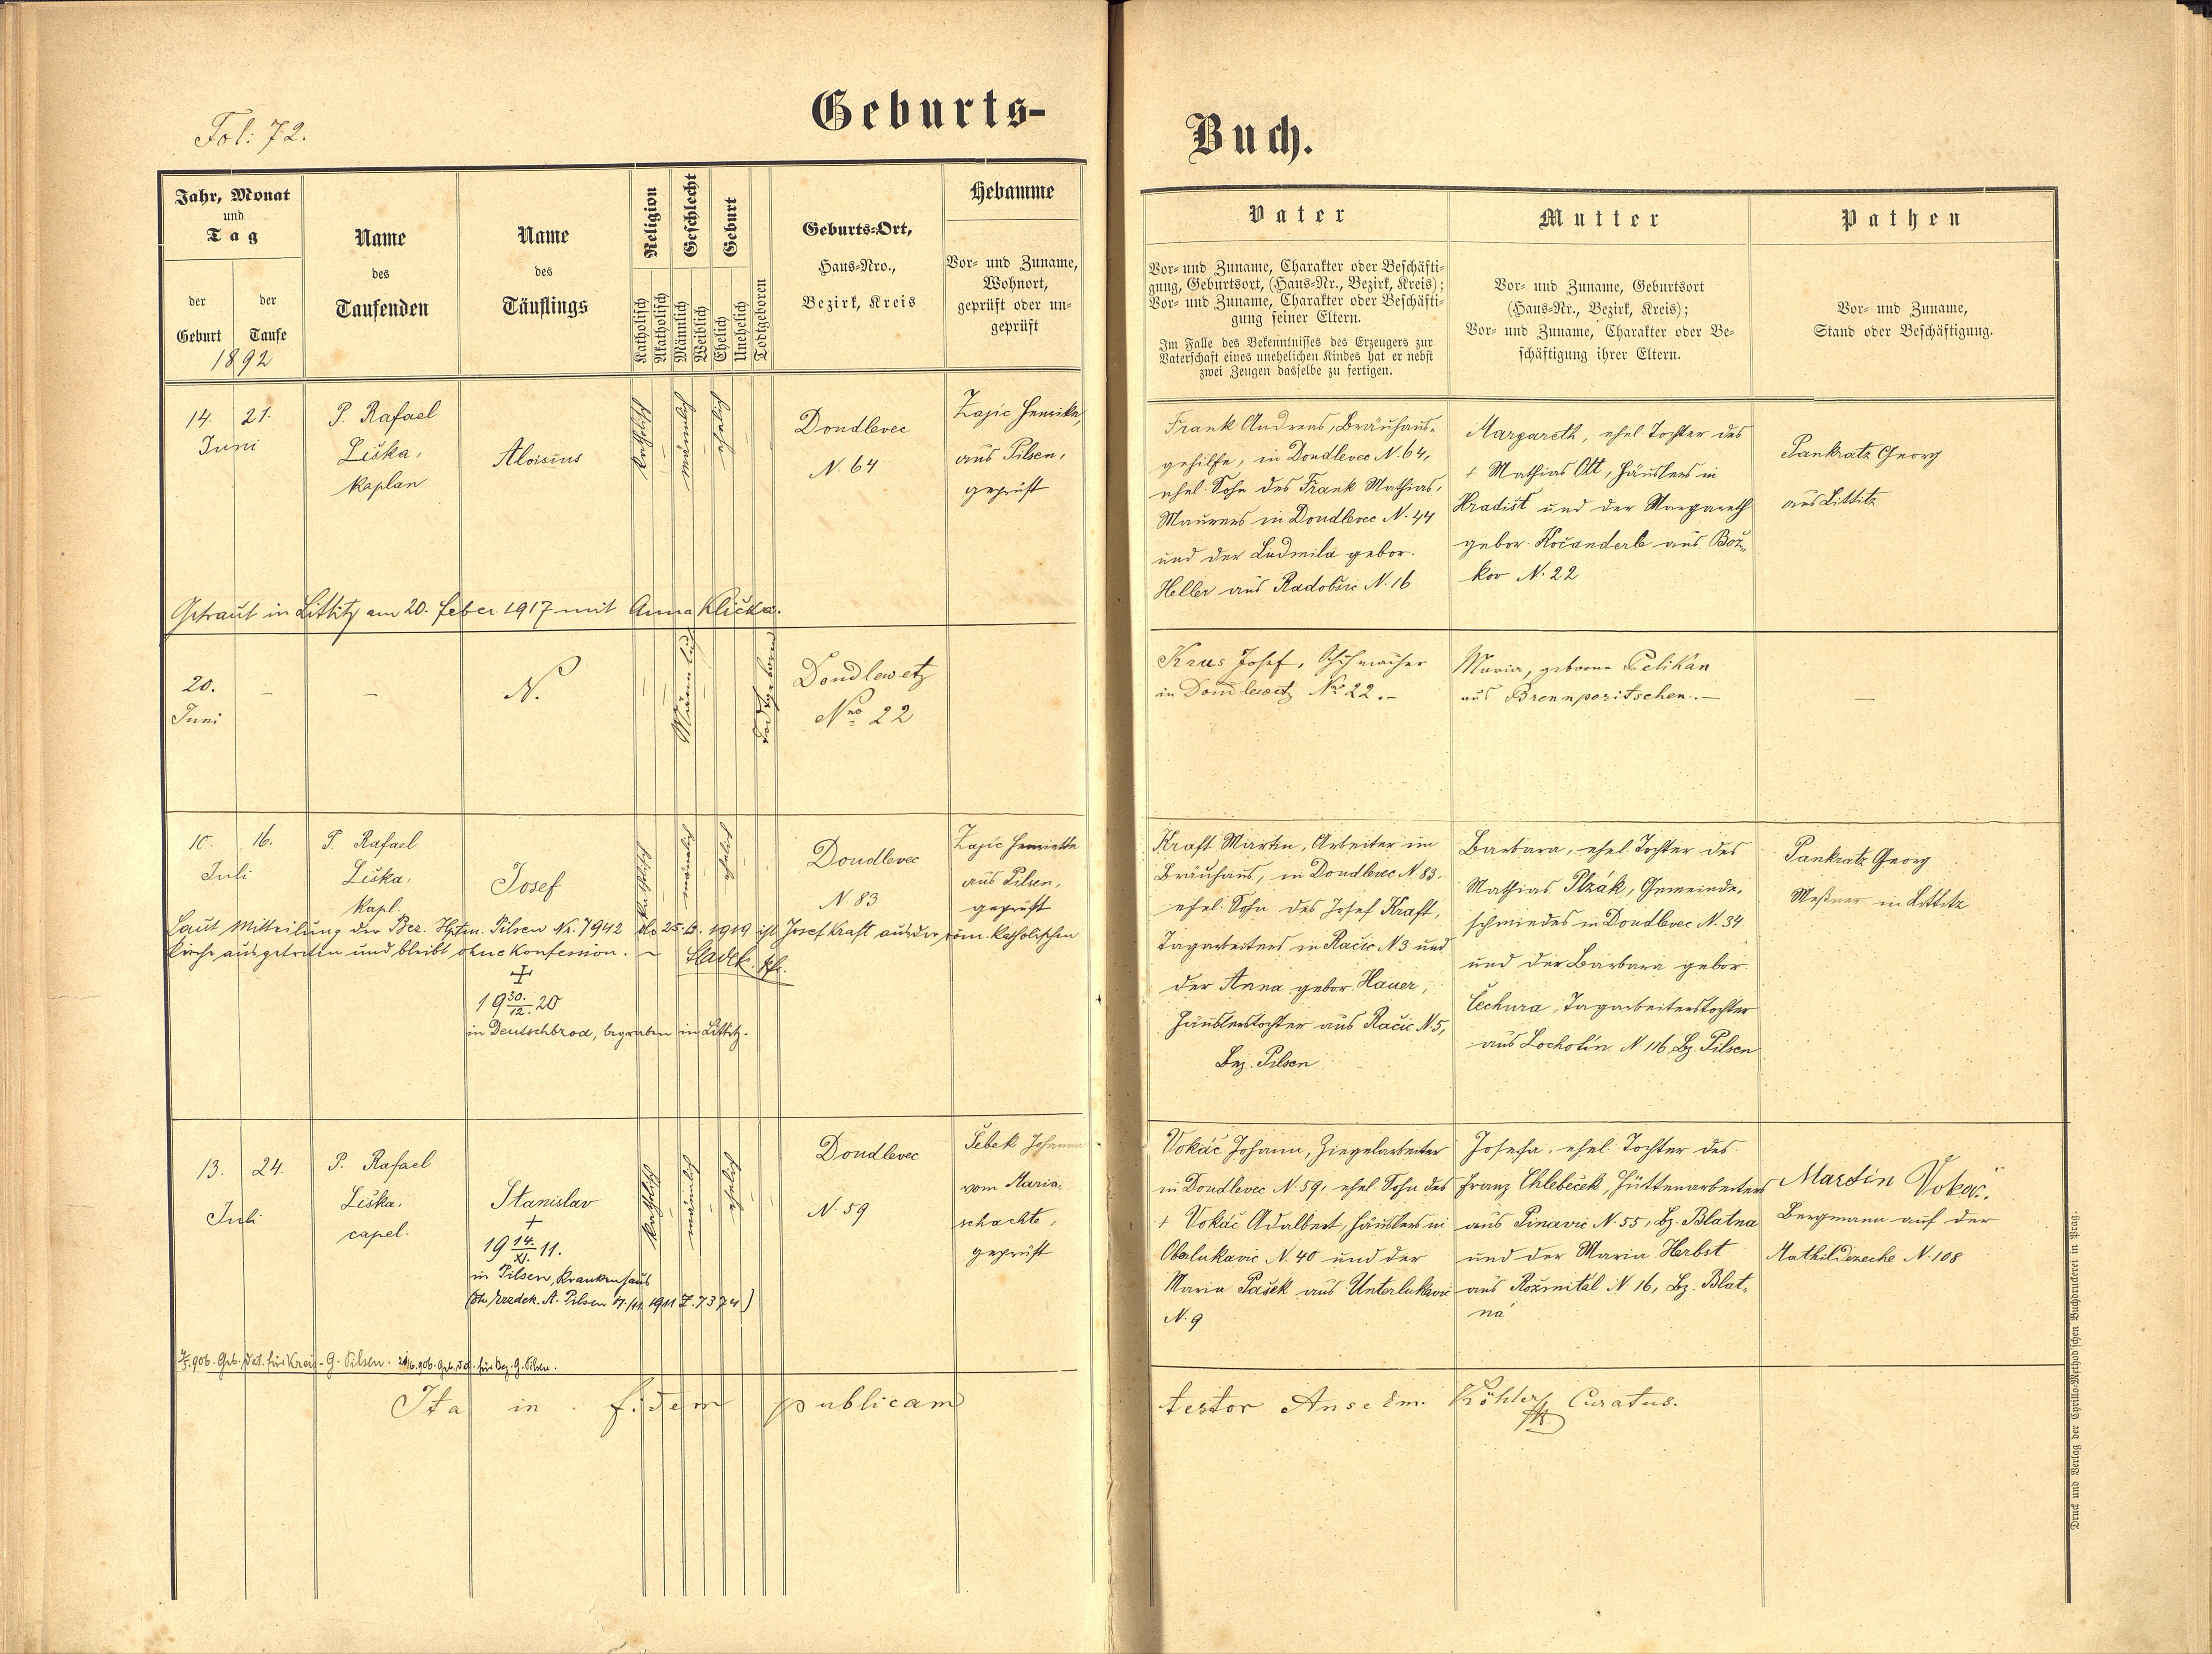 Fol: 72.
Geburts-
Buch.
Jahr, Monat
und
Tag
der
Geburt
der
Taufe
1892
Name
des
Taufenden
Name
des
Täuflings
Religion
Katholisch
Akatholisch
Geschlecht
Männlich
Weiblich
Geburt
Ehelich
Unehelich
Todtgeboren
Geburts-Ort,
Haus-Nro.,
Bezirk, Kreis
Hebamme
Vor- und Zuname,
Wohnort,
geprüft oder un-
geprüft
Vater
Vor- und Zuname, Charakter oder Beschäfti-
gung, Geburtsort, (Haus-Nr., Bezirk, Kreis);
Vor- und Zuname, Charakter oder Beschäfti-
gung seiner Eltern.
Im Falle des Bekenntnisses des Erzeugers zur
Vaterschaft eines unehelichen Kindes hat er nebst
zwei Zeugen dasselbe zu fertigen.
Mutter
Vor- und Zuname, Geburtsort
(Haus-Nr., Bezirk, Kreis);
Vor- und Zuname, Charakter oder Be-
schäftigung ihrer Eltern.
Pathen
Vor- und Zuname,
Stand oder Beschäftigung.
14. 21.
Juni
P. Rafael
Liška,
Kaplan
Aloisius
katholisch
männlich
ehelich
Dondlevec
N. 64
Zajic Henrika,
aus Pilsen,
geprüft
Frank Andreas, Bräuhaus-
gehilfe, in Dondlevec N. 64,
ehel. Sohn des Frank Mathias,
Maurers in Dondlevec N. 44
und der Ludmila gebor.
Heller aus Radobšic N. 16
Margareth, ehel Tochter des
+ Mathias Ott, Häuslers in
Hradist und der Margareth
gebor. Kočanderle aus Bož-
kov N. 22
Pankratz Georg
aus Littitz
Getraut in Littitz am 20. Feber 1917 mit Anna Klička.
20.
Juni
–
–
N.
Männlich
Todtgeboren
Dondlewetz
Nro 22
Krus Josef, Schuhmacher
in Dondlewetz Nro 22.-
Maria, geborne Pelikan
aus Brennporitschen.-
–
10. 16.
Juli
P. Rafael
Liška,
Kapl.
Josef
katholisch
männlich
ehelich
Dondlevec
N. 83
Zajic Henriette
aus Pilsen,
geprüft
Kraft Martin, Arbeiter im
Bräuhaus, in Dondlevec N. 83,
ehel. Sohn des Josef Kraft,
Tagarbeiters in Račic N. 3 und
der Anna gebor. Hauer,
Häuslerstochter aus Račic N. 5,
Bez. Pilsen
Barbara, ehel. Tochter des
Mathias Plzák, Gemeinde-
schmiedes in Dondlevec N. 34
und der Barbara gebor
Čechura, Tagarbeiterstochter
aus Lochotin N. 116, Bz. Pilsen
Pankratz Georg
Meßner in Littitz
Laut Mitteilung der Bez. Hptm. Pilsen Nr. 7942 1919 ist Josef Kraft aus der röm. katholischen
Kirche ausgetreten und bleibt ohne Konfession. – Sladek
+
19 30./12. 20
in Deutschbrod, begraben in Littitz.
13. 24.
Juli
P. Rafael
Liška,
capel.
Stanislav
+
19 14./XI. 11.
in Pilsen, Krankenhaus
Pilsen 1911 Z. 7374)
katholisch
männlich
ehelich
Dondlevec
N. 59
Šebek Johanna
vom Maria-
schachte,
geprüft
Vokáč Johann, Ziegelarbeiter
in Dondlevec N. 59, ehel. Sohn des
+ Vokáč Adalbert, Häuslers in
Oberlukavic N. 40 und der
Maria Pašek aus Unterlukavic
N. 9
Josefa, ehel. Tochter des
Franz Chlebeček, Hüttenarbeiters
aus Pinavic N. 55, Bz. Blatna
und der Maria Herbst
aus Rožmitál N. 16, Bz. Blat-
ná
Martin Vokáč,
Bergmann auf der
Mathildezeche N. 108
906. Geb. Dat. für Kreis-G. Pilsen. 906. Geb. Dat. für Bez. G. Pilsen.
Ita in fidem publicam
testor Anselm. Köhler Curatus.
Druck und Verlag der Cyrillo-Method'schen Buchdruckerei in Prag.